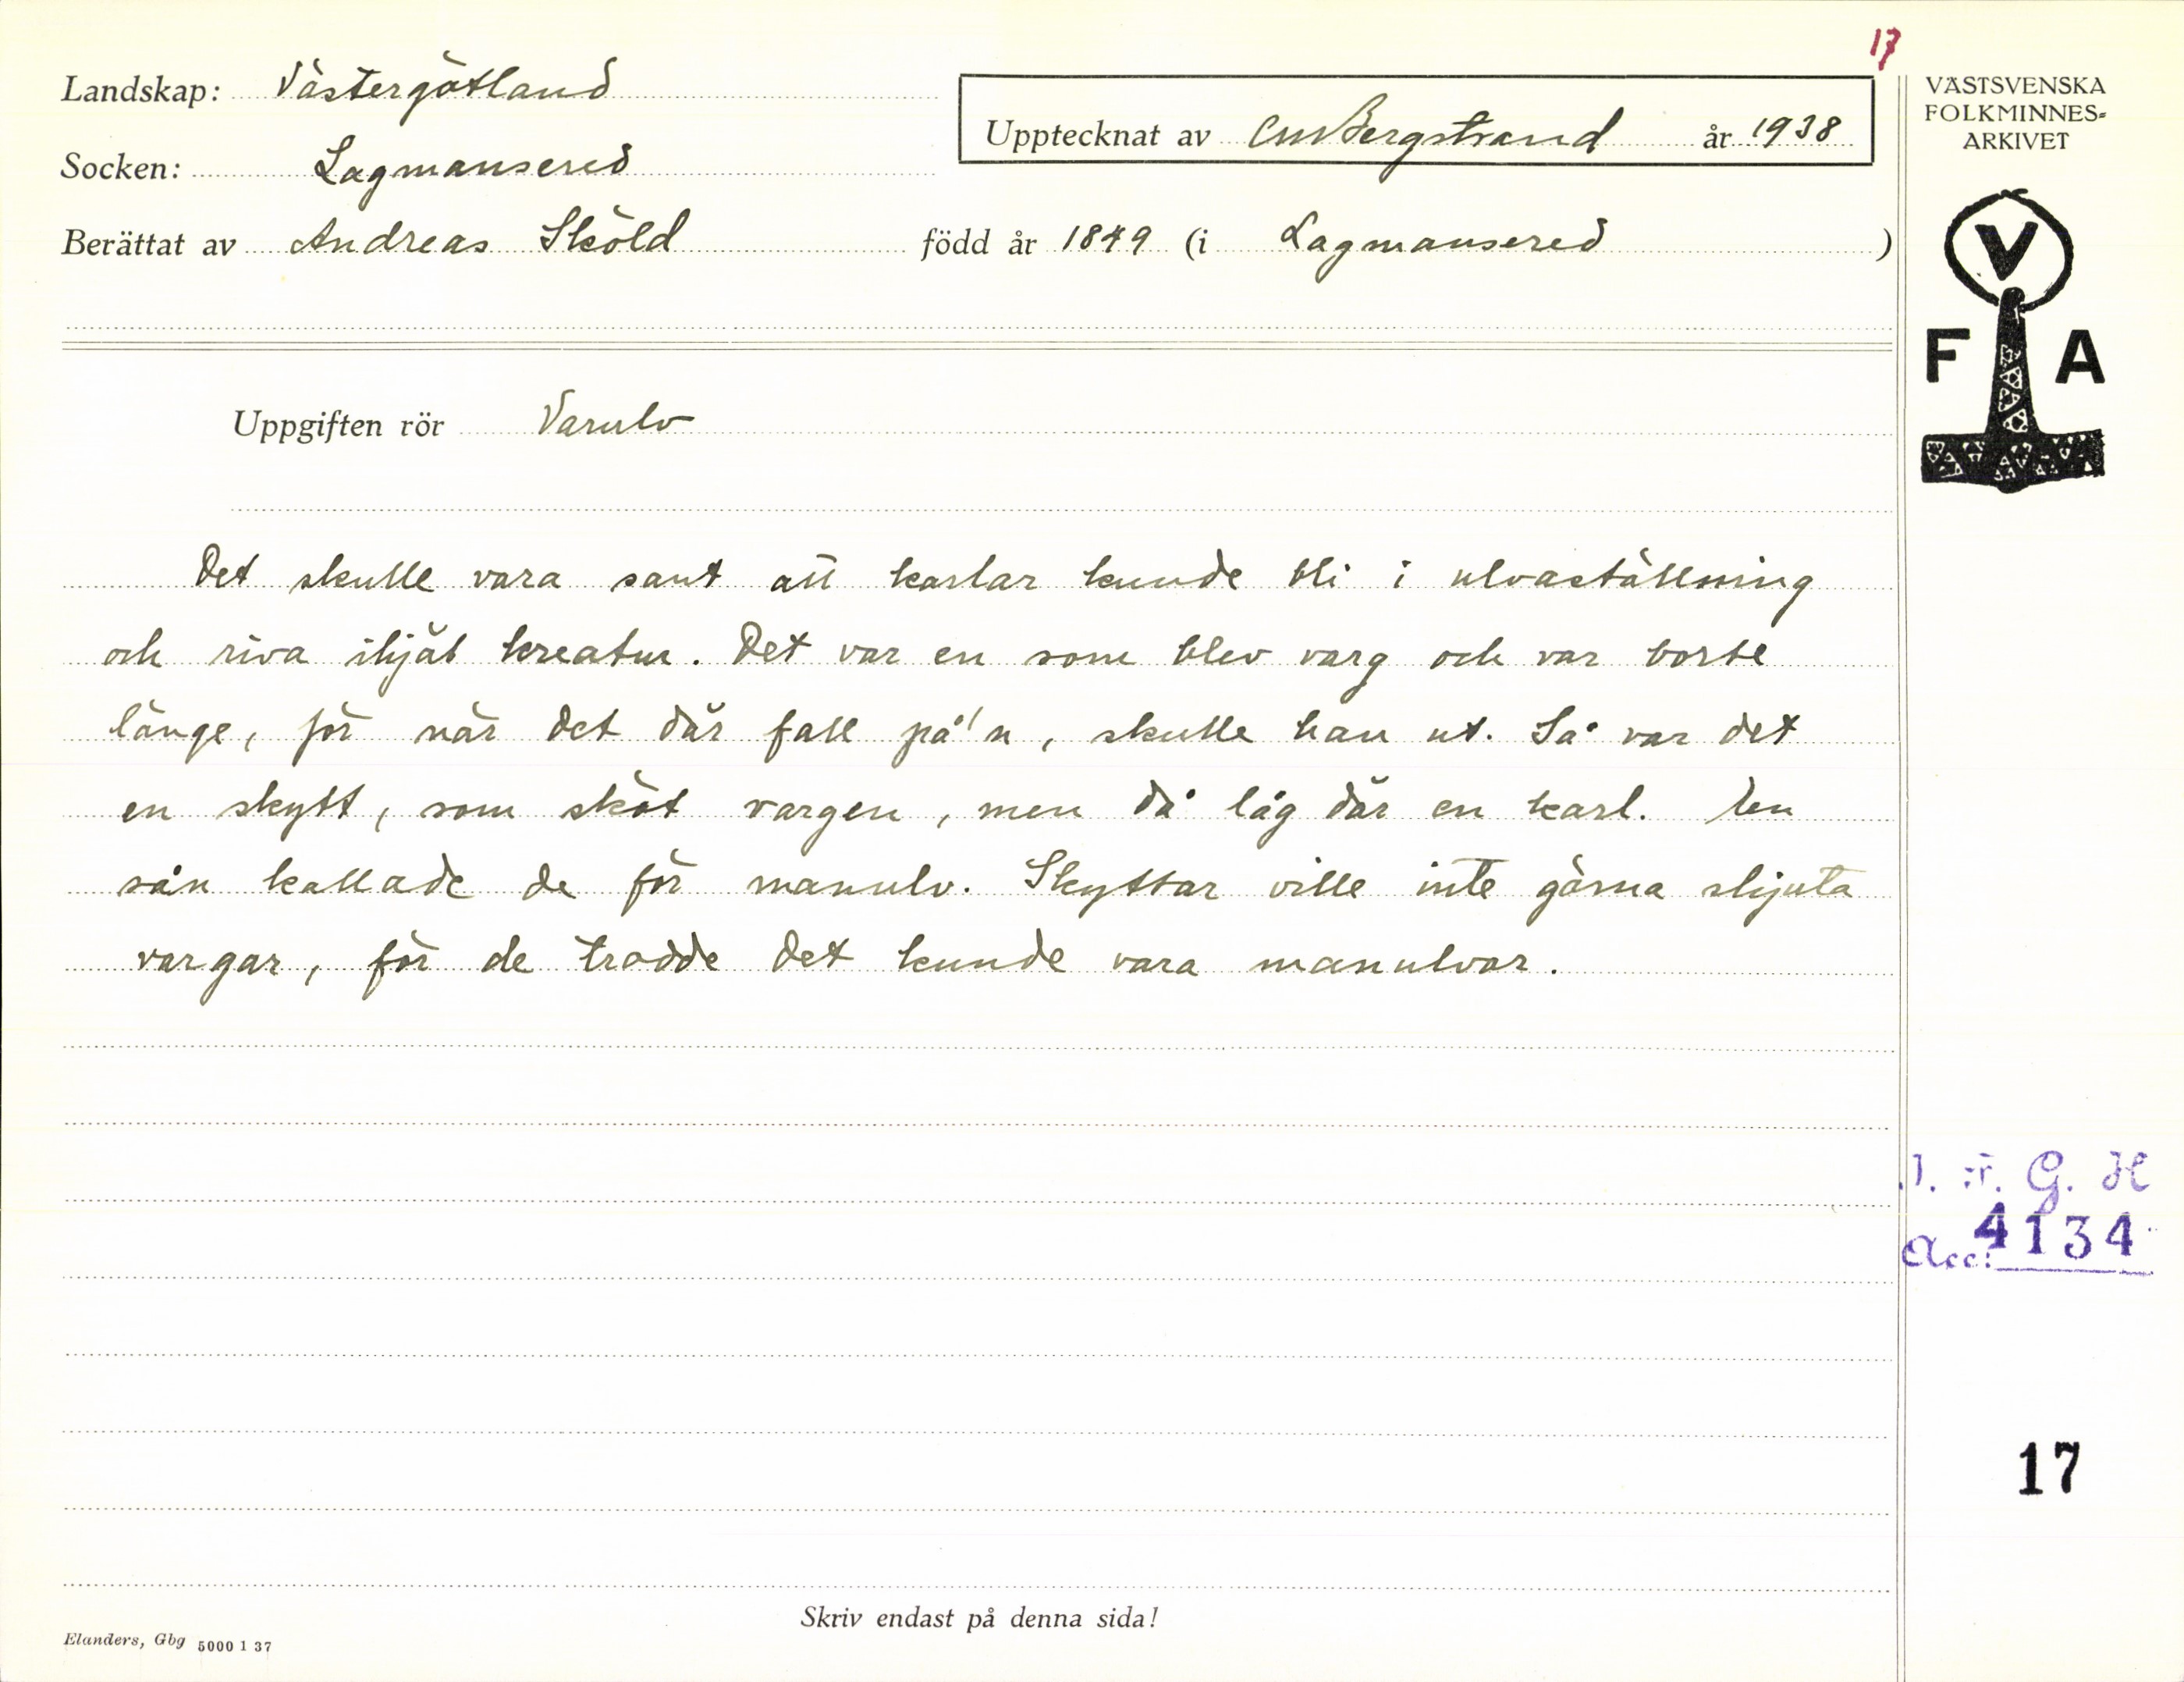 17
Landskap: Västergötland
Upptecknat av CMBergstrand år 1938
Socken: Lagmansered
Berättat av Andreas Sköld född år 1849 (i Lagmansered )
VÄSTSVENSKA
FOLKMINNES-
ARKIVET
V
F A
Uppgiften rör Varulv
Det skulle vara sant att karlar kunde bli i ulvaställning
och riva ihjäl kreatur. Det var en som blev varg och var borte
länge, för när det där fall på'n, skulle han ut. Så var det
en skytt, som sköt vargen, men då låg där en karl. En
sån kallade de för manulv. Skyttar ville inte gärna skjuta
vargar, för de trodde det kunde vara manulvar.
I. F. G. H
Acc: 4134
17
Skriv endast på denna sida!
Elanders, Gbg 5000 1 37